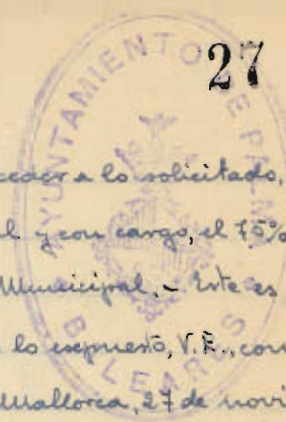 27
AYUNTAMIENTO DE PALMA
BALEARES
ceder a lo solicitado,
l y con cargo, el 75%
Municipal.- Este es
lo expuesto, V.E., con
Mallorca, 27 de novi